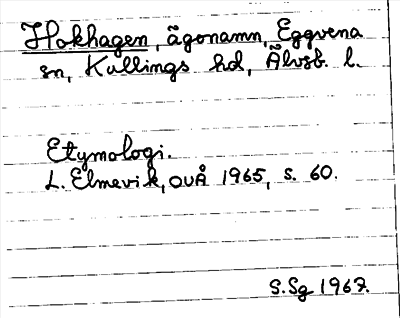 Hokhagen, ägonamn, Eggvena
sn, Kullings hd, Älvsb. l.
Etymologi.
L. Elmevik, OUÅ 1965, s. 60.
S.Sg 1967.